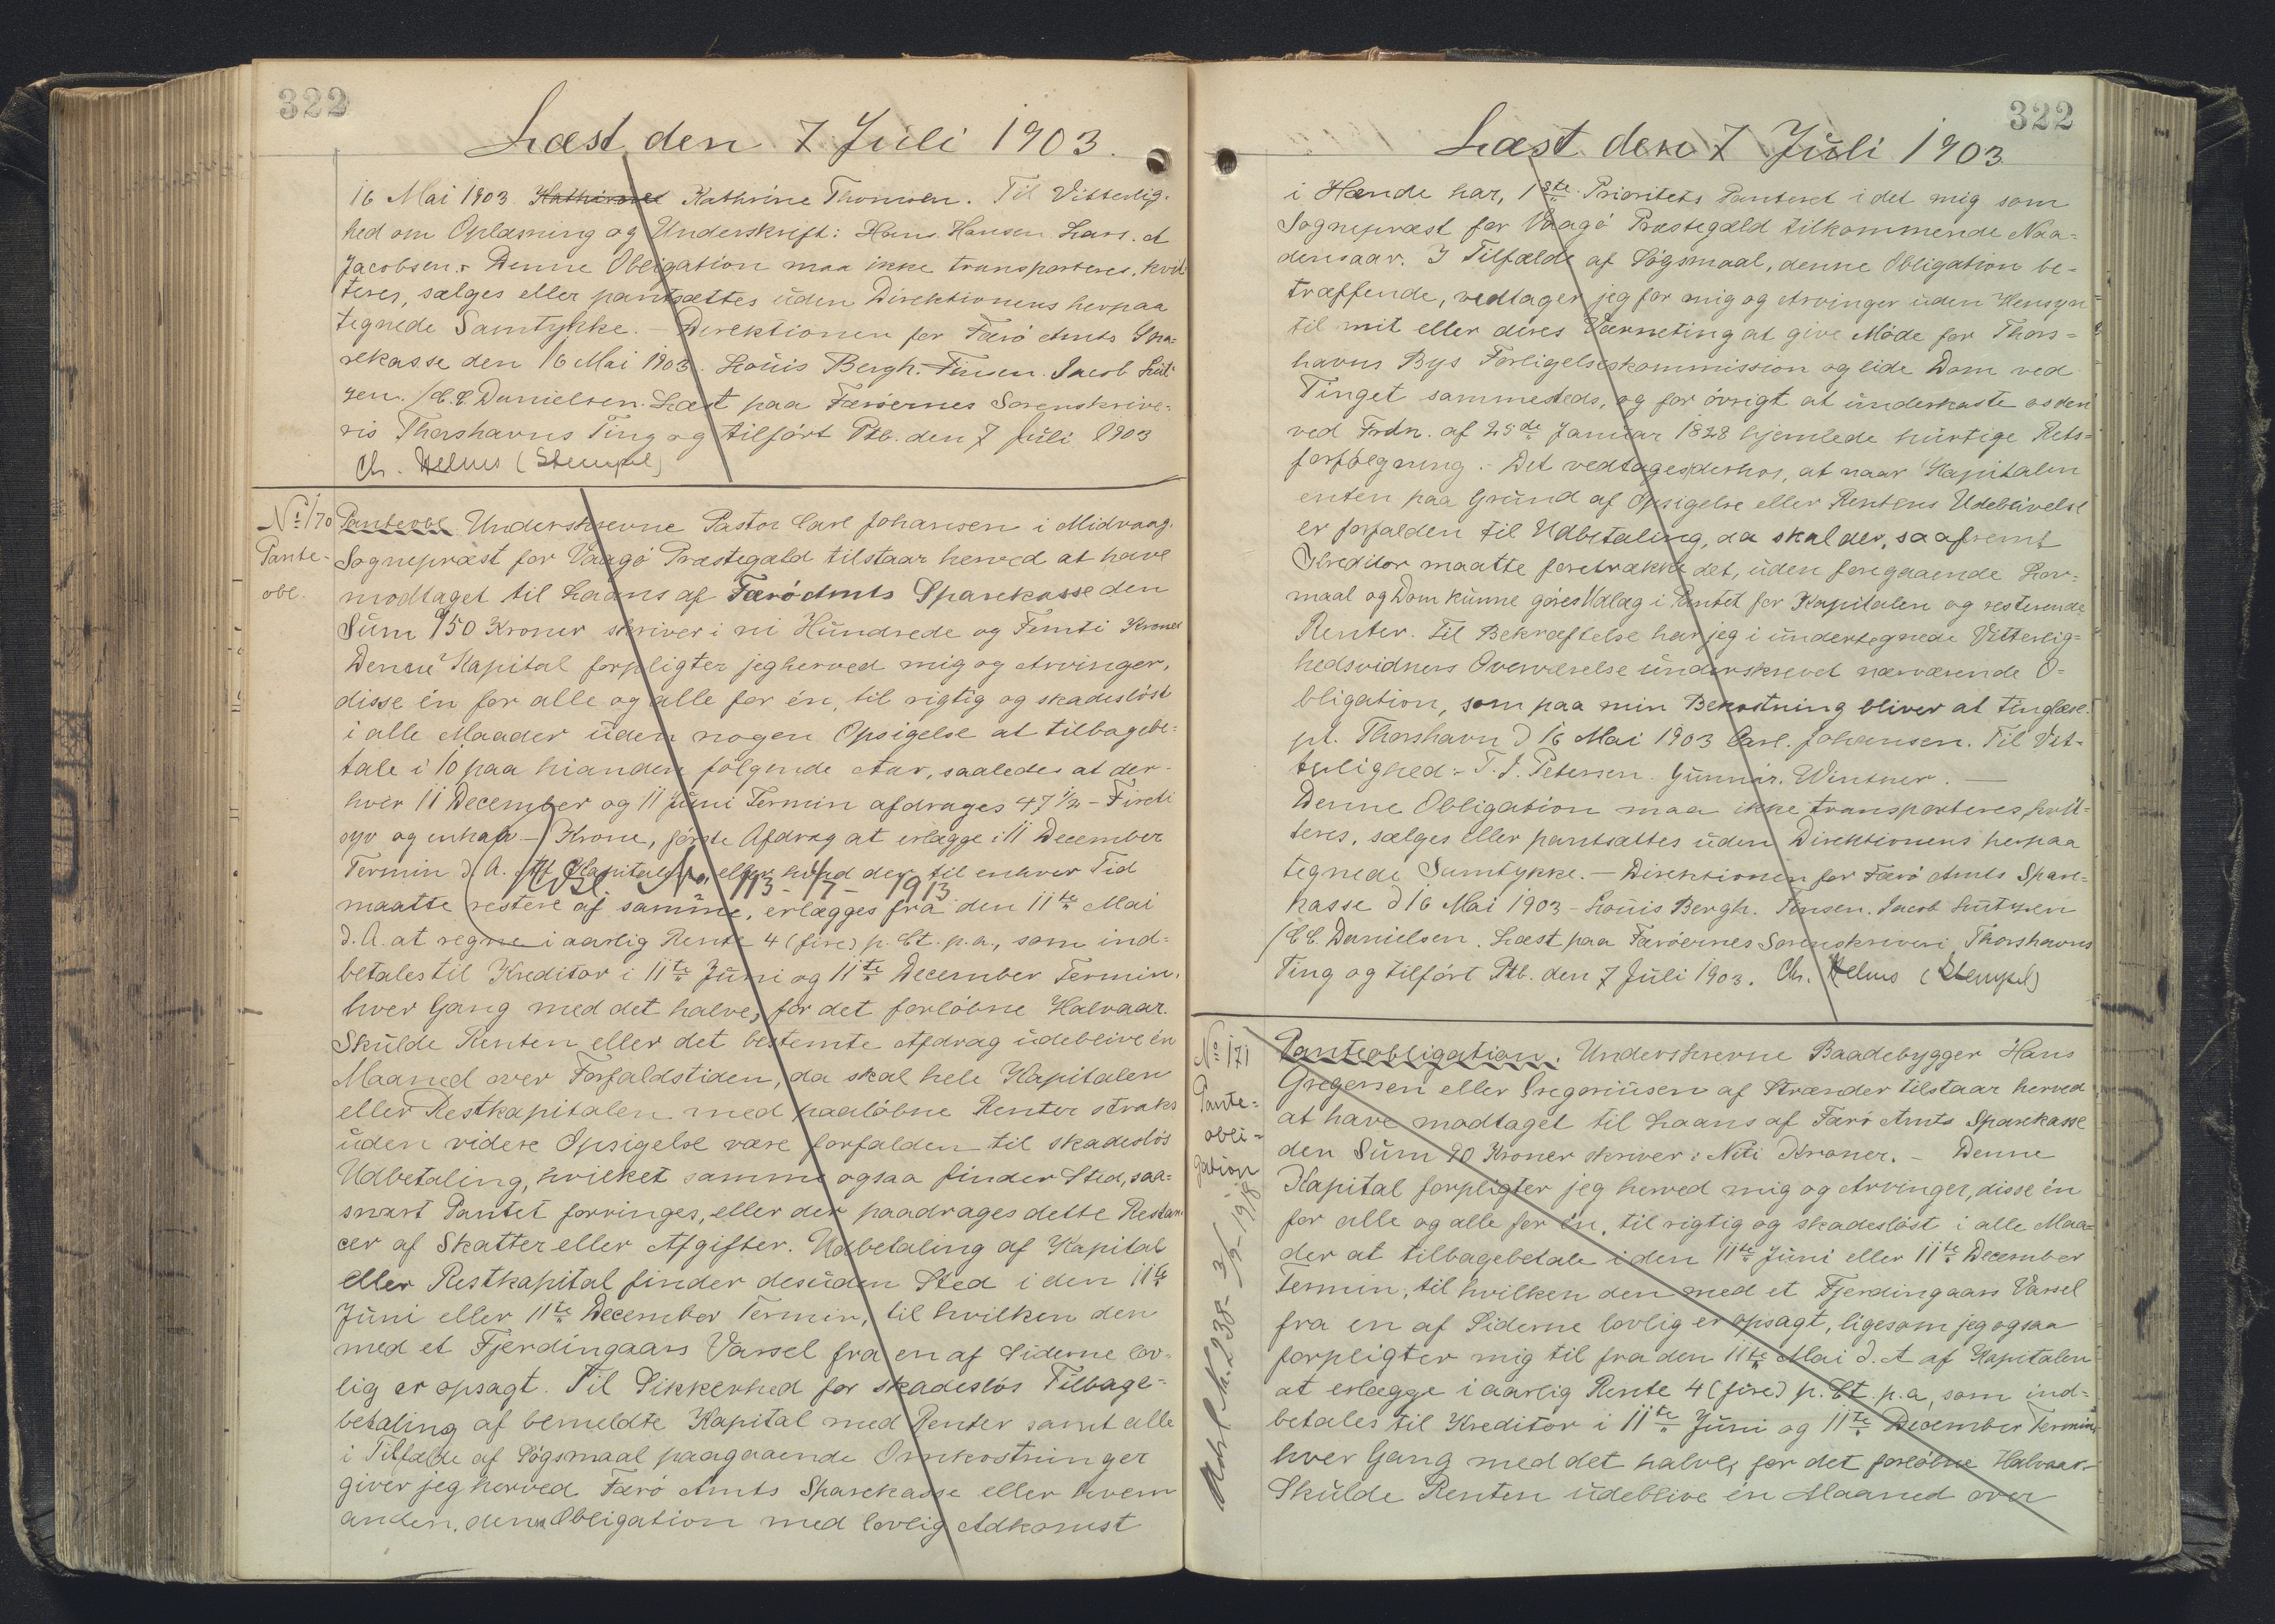 322
Læst den 7 Juli 1903.
16 Mai 1903. Kathrine Thomsen. Til Vitterlig-
hed om Oplæsning og Underskrift: Hans Hansen. Lars. A
Jacobsen. Denne Obligation maa ikke transporteres, kvit-
teres, sælges eller pantsættes uden Direktionens herpaa
tegnede Samtykke. — Direktionen for Færö Amts Spa-
rekasse den 16 Mai 1903. Louis Bergh. Finsen. Jacob Lüt-
zen. /C. C. Danielsen. Læst paa Færöernes Sorenskrive-
ris Thorshavns Ting og tilfört Ptb. den 7 Juli 1903
Ch. Helms (Stempel)
No 170
Pante-
obl.
Panteobl. Underskrevne Pastor Carl Johansen i Midvaag.
Sognepræst for Vaagö Præstegæld tilstaar herved at have
modtaget til Laans af Færö Amts Sparekasse den
Sum 950 Kroner skriver i ni Hundrede og Femti Kroner
Denne Kapital forpligter jeg herved mig og Arvinger,
disse én for alle og alle for én, til rigtig og skadeslöst
i alle Maader uden nogen Opsigelse at tilbagebe-
tale i 10 paa hianden fölgende Aar, saaledes at der
hver 11 December og 11 Juni Termin afdrages 47 1/2 - Fireti
syv og en halv - Krone, förste Afdrag at erlægge i 11 December
Termin d. A. Af Kapitalen, eller hvad der til enhver Tid
Udsl. No 113 - 1/7 - 1913
maatte restere af samme, erlægges fra den 11te Mai
d. A. at regne i aarlig Rente 4 (fire) p. Ct. p. a., som ind-
betales til Kreditor i 11te Juni og 11te December Termin,
hver Gang med det halve, for det forlöbne Halvaar.
Skulde Renten eller det bestemte Afdrag udeblive én
Maaned over Forfaldstiden, da skal hele Kapitalen
eller Restkapitalen med paalöbne Renter straks
uden videre Opsigelse være forfalden til skadeslös
Udbetaling, hvilket samme ogsaa finder Sted, saa-
snart Pantet forringes, eller der paadrages dette Restan-
cer af Skatter eller Afgifter. Udbetaling af Kapital
eller Restkapital finder desuden Sted i den 11te
Juni eller 11te December Termin, til hvilken den
med et Fjerdingaars Varsel fra en af Siderne lov-
lig er opsagt. Til Sikkerhed for skadeslös Tilbage-
betaling af bemeldte Kapital med Renter samt alle
i Tilfælde af Sögsmaal paagaaende Omkostninger
giver jeg herved Færö Amts Sparekasse eller hvem
anden, denne Obligation med lovlig Adkomst
322
Læst den 7 Juli 1903
i Hænde har, 1ste Prioritets Panteret i det mig som
Sognepræst for Vaagö Præstegæld tilkommende Naa-
densaar. I Tilfælde af Sögsmaal, denne Obligation be-
træffende, vedtager jeg for mig og Arvinger uden Hensyn
til mit eller deres Værneting at give Möde for Thors-
havns Bys Forligelseskommission og lide Dom ved
Tinget sammesteds, og for övrigt at underkaste os den
ved Frdn. af 25de Januar 1828 hjemlede hurtige Rets-
forfölgning. Det vedtages derhos, at naar Kapitalen
enten paa Grund af Opsigelse eller Rentens Udeblivelse
er forfalden til Udbetaling, da skal der, saafremt
Kreditor maatte foretrække det, uden foregaaende Lov-
maal og Dom kunne göres Udlæg i Pantet for Kapitalen og resterende
Renter. Til Bekræftelse har jeg i undertegnede Vitterlig-
hedsvidners Overværelse underskrevet nærværende O-
bligation, som paa min Bekostning bliver at tinglæse.
pt. Thorshavn d 16 Mai 1903 Carl. Johansen. Til Vit-
terlighed: T. J. Petersen. Gunnar. Wintner. —
Denne Obligation maa ikke transporteres, kvit-
teres, sælges eller pantsættes uden Direktionens herpaa
tegnede Samtykke. — Direktionen for Færö Amts Spare-
kasse d 16 Mai 1903 - Louis Bergh. Finsen. Jacob Lützen
/C C. Danielsen. Læst paa Færöernes Sorenskriveri Thorshavns
Ting og tilfört Ptb. den 7 Juli 1903. Ch. Helms (Stempel)
No 171
Pante-
obli-
gation
Udsl No. 238 - 3/5 - 1918
Panteobligation. Underskrevne Baadebygger Hans
Gregersen eller Gregoriusen af Strænder tilstaar herved
at have modtaget til Laans af Færö Amts Sparekasse
den Sum 90 Kroner skriver: Niti Kroner. - Denne
Kapital forpligter jeg herved mig og Arvinger, disse én
for alle og alle for én, til rigtig og skadeslöst i alle Maa-
der at tilbagebetale i den 11te Juni eller 11te December
Termin, til hvilken den med et Fjerdingaars Varsel
fra en af Siderne lovlig er opsagt, ligesom jeg ogsaa
forpligter mig til fra den 11te Mai d. A af Kapitalen
at erlægge i aarlig Rente 4 (fire) p. Ct. p. a, som ind-
betales til Kreditor i 11te Juni og 11te December Termin,
hver Gang med det halve, for det forlöbne Halvaar.
Skulde Renten udeblive én Maaned over